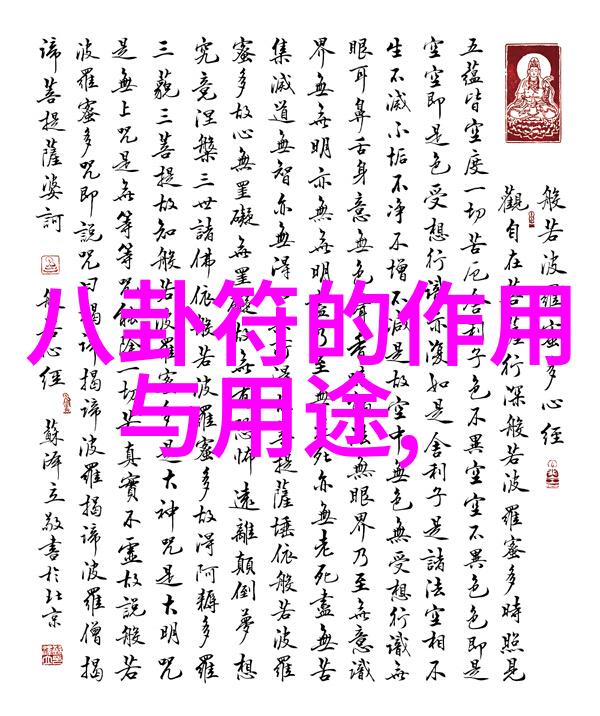 八卦符的作用
与用途,
般若波羅蜜多心經
觀自在菩薩行深般若波羅蜜多時照見
五蘊皆空度一切苦厄舍利子色不異空空不異色色即是
空空即是色受想行識亦復如是舍利子是諸法空相不
生不滅不垢不净不增不減是故空中無色無受想行識無
眼耳鼻舌身意無色聲香味觸法無眼界乃至無意識
界無無明亦無無明盡乃至無老死亦無老死盡無苦
集滅道無智亦無得以無所得故菩提薩埵依般若波羅
蜜多故心無罣礙無罣礙故無有恐怖遠離顛倒夢想
究竟涅槃三世諸佛依般若波羅蜜多故得阿耨多羅
三藐三菩提故知般若波羅蜜多是大神咒是大明咒
是無上咒是無等等咒能除一切苦真實不虛故說般若
波羅蜜多咒即說咒曰揭諦揭諦波羅揭諦波羅僧揭
諦菩提薩婆訶 般若心經 蘇澤立敬書於北京